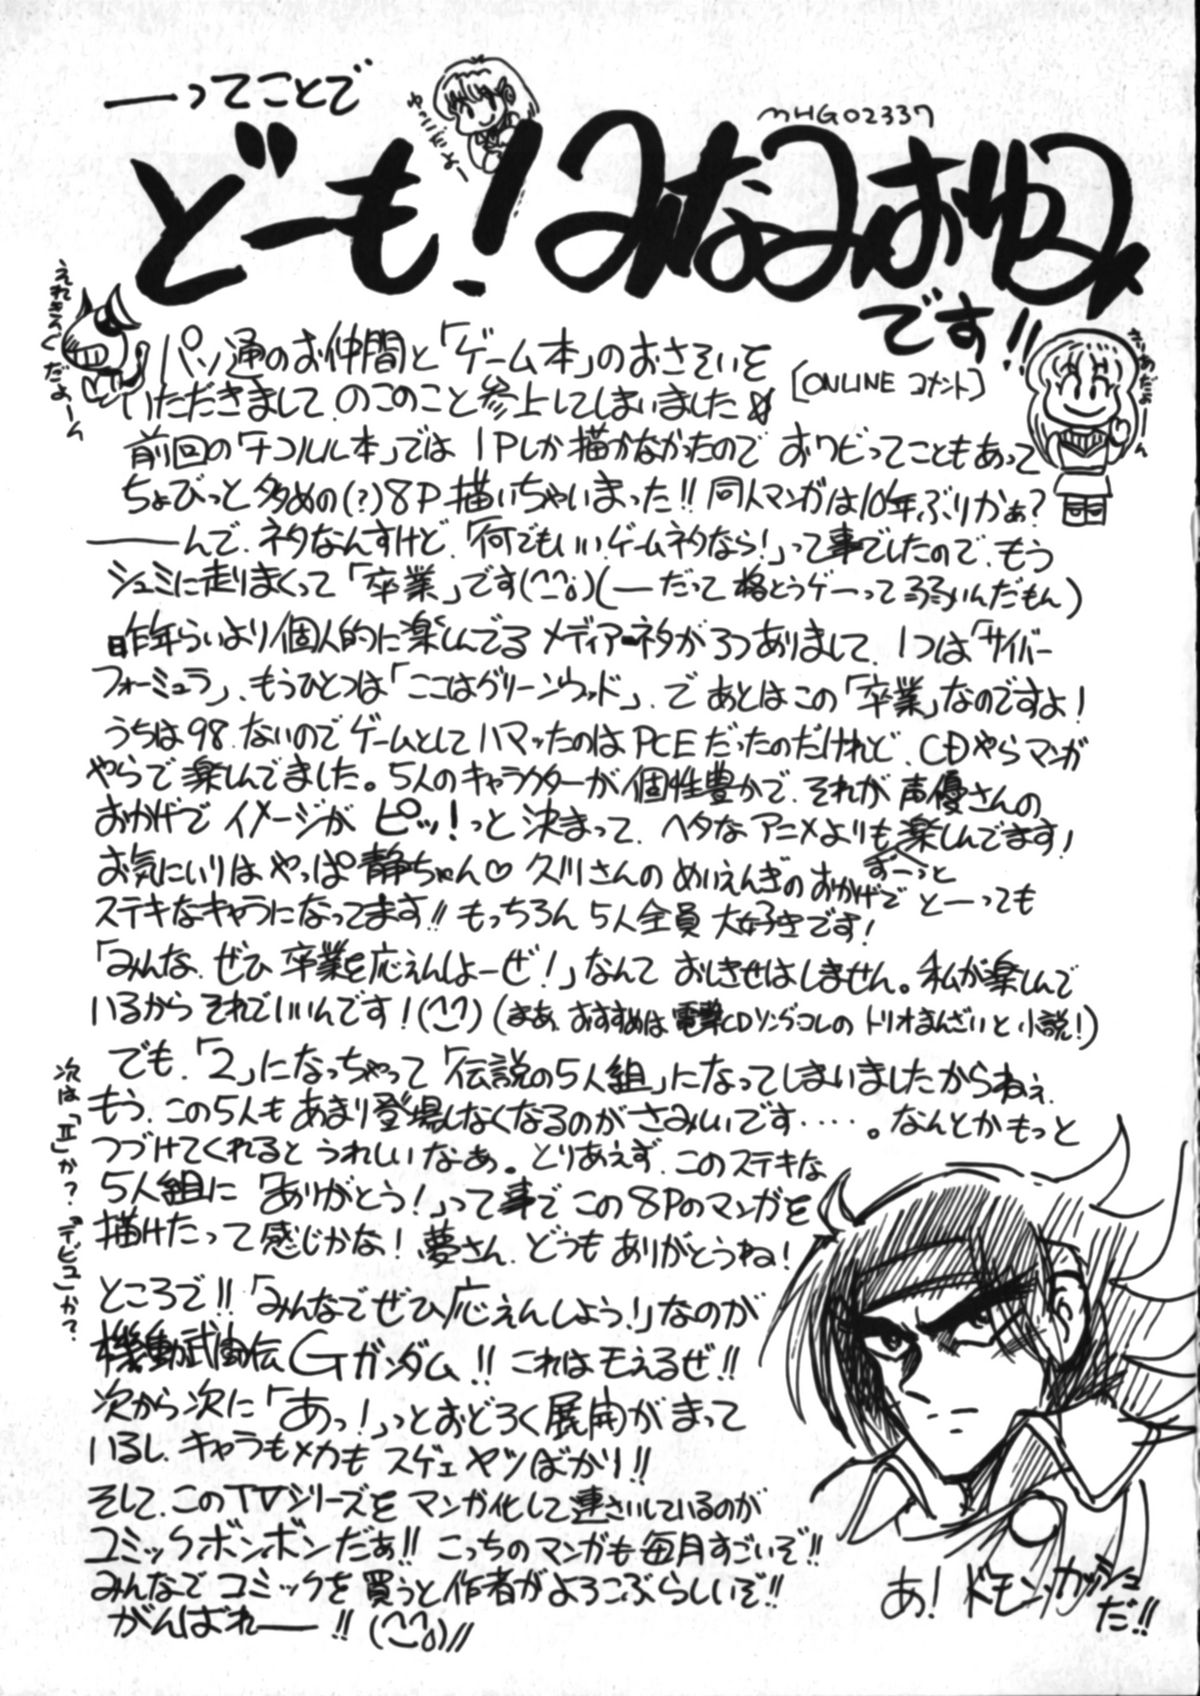 ーってことで
ゆーこだよー
MHG02337
どーも!みなみおゆみ
です!!
えれきんぐだよーん
えりあだよーん
パソ通のお仲間と「ゲーム本」のおさそいを
いただきまして、のこのこと参上してしまいました
[ONLINE コメント]
前回の「ナコルル本」では 1Pしか描かなかったので おワビってこともあって
ちょびっと多めの(?)8P描いちゃいまった!!同人マンガは10年ぶりかぁ?
――んで、ネタなんすけど、「何でもいい、ゲームネタなら!」って事でしたので、もう
シュミに走りまくって「卒業」です(^^;)(―だって格とうゲーって弱いんだもん)
昨年らいより個人的に楽しんでるメディアネタが3つありまして、1つは「サイバー
フォーミュラ」、もうひとつは「ここはグリーンウッド」、で あとはこの「卒業」なのですよ!
うちは98、ないのでゲームとしてハマッたのはPCEだったのだけれど、CDやらマンガ
やらで楽しんでました。5人のキャラクターが個性豊かで、それが声優さんの
おかげでイメージがピッ!っと決まって、ヘタなアニメよりも楽しんでます!
お気にいりはやっぱ静ちゃん♡ 久川さんのめいえんぎのおかげで ずーっと とーっても
ステキなキャラになってます!! もっちろん5人全員大好きです!
「みんな、ぜひ卒業を応えんしよーぜ!」なんて おしきせはしません。私が楽しんで
いるから それでいいんです!(^^)(まあ、おすすめは電撃CDソングコレのトリオまんざいと小説!)
でも、「2」になっちゃって「伝説の5人組」になってしまいましたからねぇ、
もう、この5人もあまり登場しなくなるのがさみしいです‥‥。なんとかもっと
つづけてくれるとうれしいなぁ。とりあえず、このステキな
5人組に「ありがとう!」って事でこの8Pのマンガを
描けたって感じかな!夢さん、どうもありがとうね!
次は「Ⅱ」か?「デビュー」か?
ところで!!「みんなでぜひ応えんしよう!」なのが
機動武闘伝Gガンダム!!これはモえるぜ!!
次から次に「あっ!」っとおどろく展開がまって
いるし、キャラもメカもスゲェヤツばかり!!
そして、このTVシリーズをマンガ化して連さいしているのが
コミックボンボンだぁ!!こっちのマンガも毎月すごいぞ!!
みんなでコミックを買うと作者がよろこぶらしいぞ!!
がんばれ――!!(^^;)//
あ!ドモン・カッシュ
だ!!